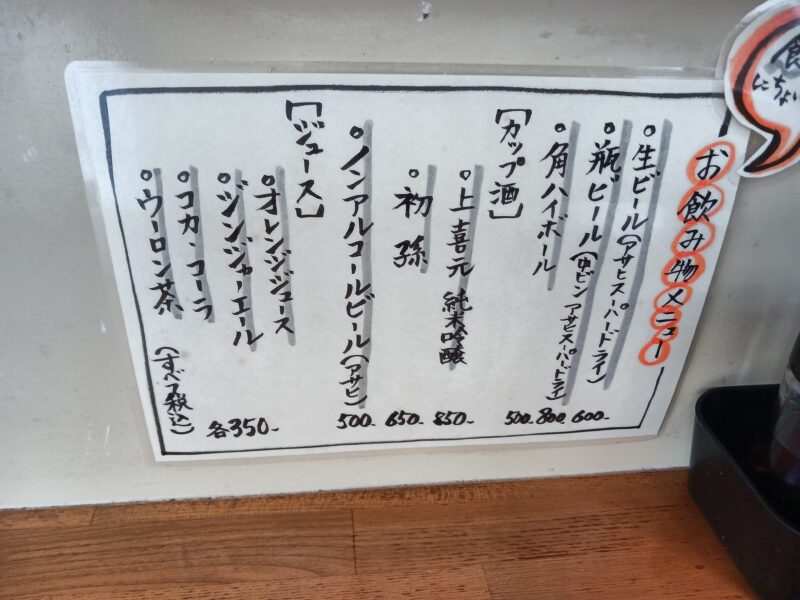 お飲み物メニュー
○生ビール(アサヒスーパードライ) 600-
○瓶ビール(中ビン アサヒスーパードライ) 800-
○角ハイボール 500-
【カップ酒】
○上喜元 純米吟醸 850-
○初孫 650-
○ノンアルコールビール(アサヒ) 500-
【ジュース】
○オレンジジュース
○ジンジャーエール
○コカ・コーラ
○ウーロン茶
各350-
(すべて税込)
にちょい